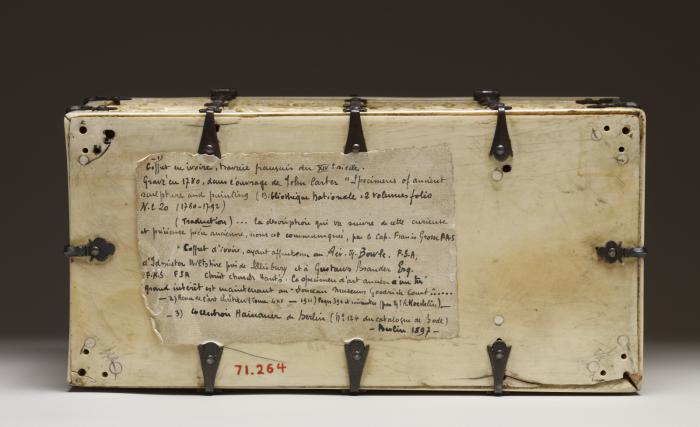 -1)
Coffret en ivoire, travail français du XIVe siècle.
Gravé en 1780, dans l'ouvrage de John Carter "Specimens of ancient
sculpture and painting (Bibliothèque Nationale, 2 volumes folio
N.L 20 (1780-1792)
(Traduction)... La description qui va suivre de cette curieuse
et précieuse pièce ancienne, nous est communiquée, par le Cap. Francis Grosse F.A.S
"Coffret d'ivoire, ayant appartenu au Rév. Bowle. F.S.A,
d'Idmiston Wiltshire près de et à Gustavus Brander Esq.
F.R.S. F.S.A Christ church Hants. Ce specimen d'art ancien
grand intérêt est maintenant au Museum Goodrich Court.....
-2) Revue de l'art chrétien (Tome - 1911) Page 394 et suivantes (par Mr R. Koechlin),-
-3) Collection Hainauer de Berlin (No 124 du catalogue de Bode)
- Berlin 1897 -
71.264